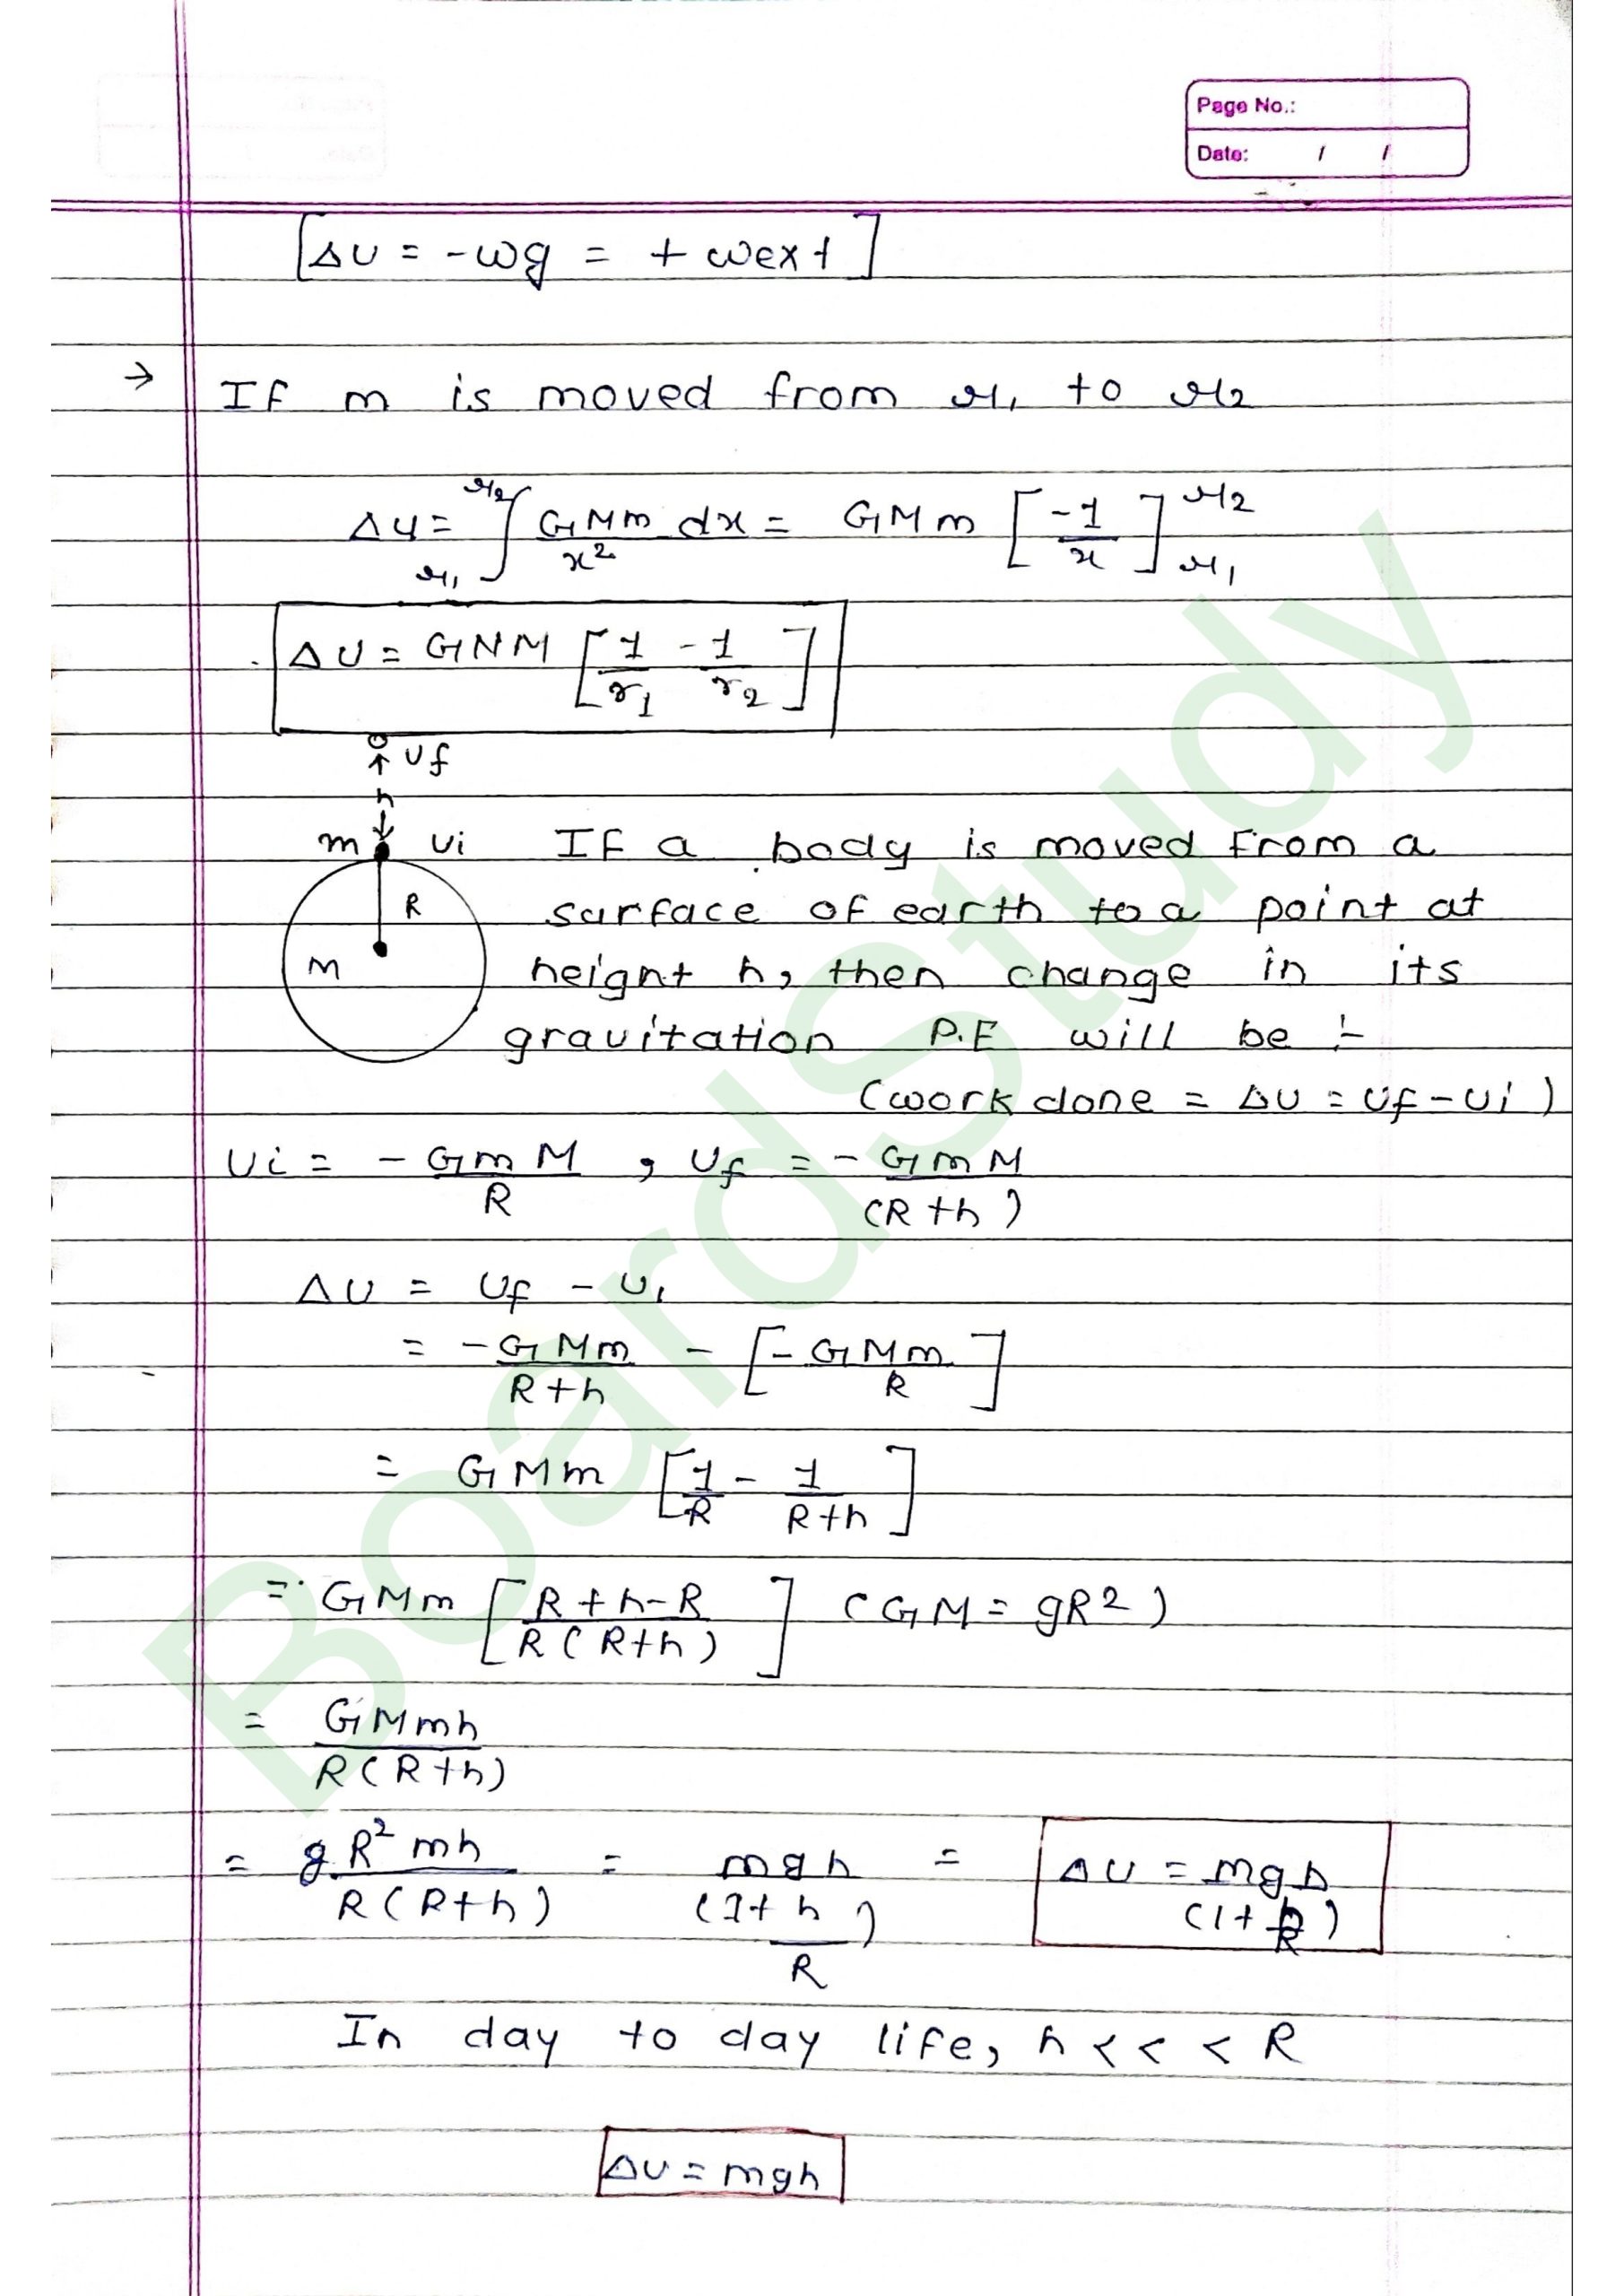 Page No.:
Date: / /
[ΔU = -wg = + wext]
→ If m is moved from r1 to r2
Δu = r1∫r2 GMm/x² dx = GMm [-1/x]r1 r2
ΔU = GNM [1/r1 - 1/r2]
Uf
h
m Ui If a body is moved from a
R surface of earth to a point at
M height h, then change in its
gravitation P.E will be :-
(work done = ΔU = Uf - Ui)
Ui = - GmM/R , Uf = - GmM/(R+h)
ΔU = Uf - Ui
= - GMm/R+h - [- GMm/R]
= GMm [1/R - 1/R+h]
= GMm [R+h-R/R(R+h)] (GM = gR²)
= GMmh/R(R+h)
= gR²mh/R(R+h) = mgh/(1+h/R) = ΔU = mgh/(1+h/R)
In day to day life, h < < < R
ΔU = mgh
BoardStudy